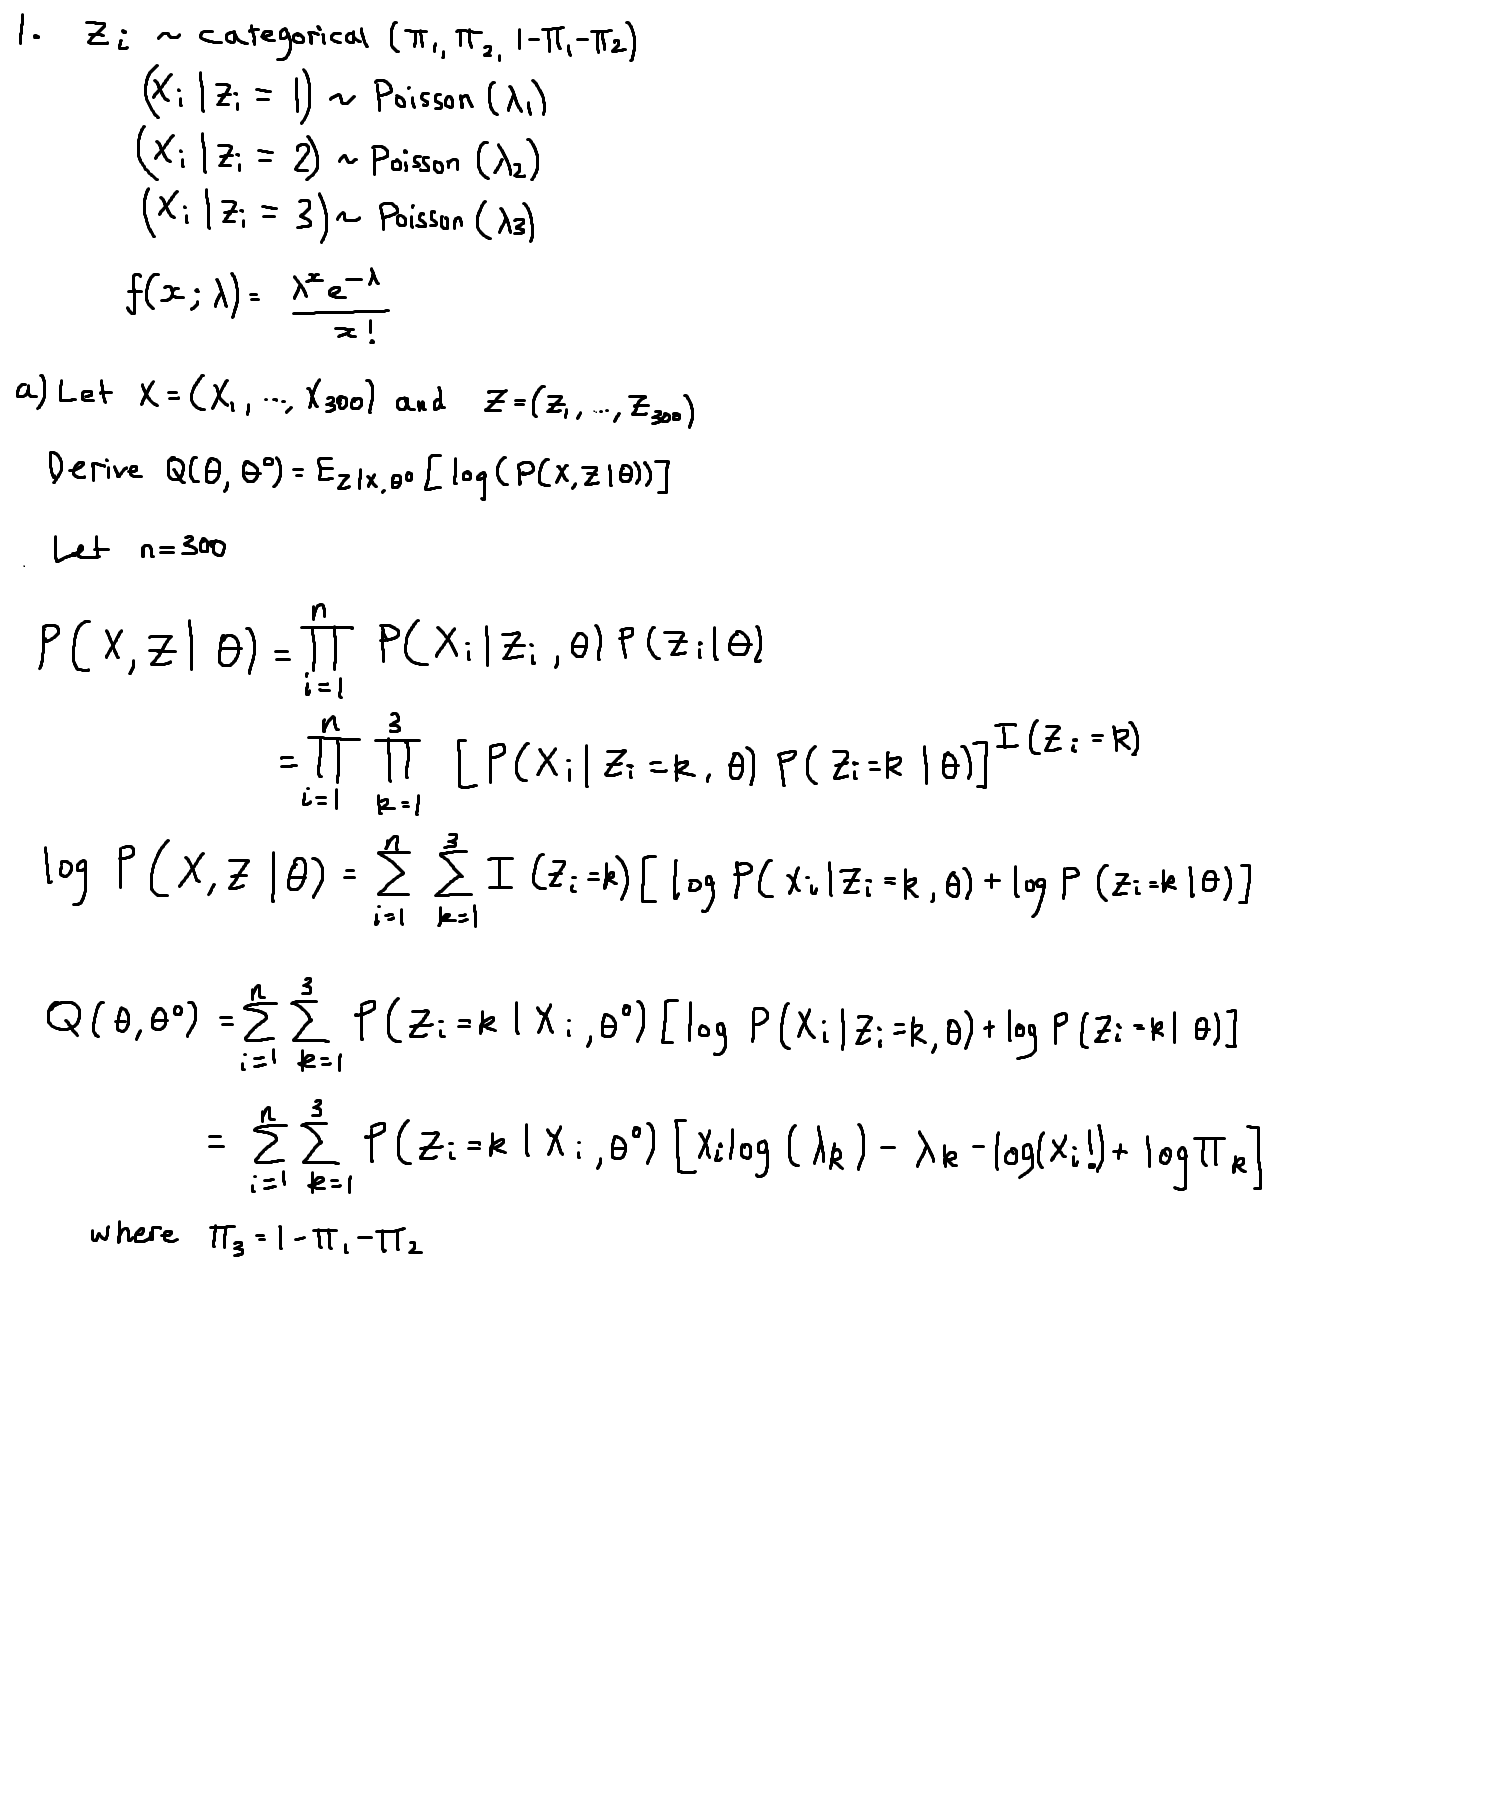 1. Zi ~ categorical (π₁, π₂, 1-π₁-π₂)
(Xi | Zi = 1) ~ Poisson (λ₁)
(Xi | Zi = 2) ~ Poisson (λ₂)
(Xi | Zi = 3) ~ Poisson (λ₃)
f(x; λ) = λ^x e^-λ / x!
a) Let X = (X₁, ..., X₃₀₀) and Z = (Z₁, ..., Z₃₀₀)
Derive Q(θ, θ⁰) = E_{Z|X,θ⁰} [log(P(X,Z|θ))]
Let n=300
P(X,Z|θ) = ∏_{i=1}^{n} P(Xi|Zi,θ) P(Zi|θ)
= ∏_{i=1}^{n} ∏_{k=1}^{3} [P(Xi|Zi=k,θ) P(Zi=k|θ)]^{I(Zi=k)}
log P(X,Z|θ) = ∑_{i=1}^{n} ∑_{k=1}^{3} I(Zi=k)[log P(Xi|Zi=k,θ) + log P(Zi=k|θ)]
Q(θ,θ⁰) = ∑_{i=1}^{n} ∑_{k=1}^{3} P(Zi=k|Xi,θ⁰)[log P(Xi|Zi=k,θ) + log P(Zi=k|θ)]
= ∑_{i=1}^{n} ∑_{k=1}^{3} P(Zi=k|Xi,θ⁰)[Xi log(λk) - λk - log(Xi!) + log πk]
where π₃ = 1-π₁-π₂